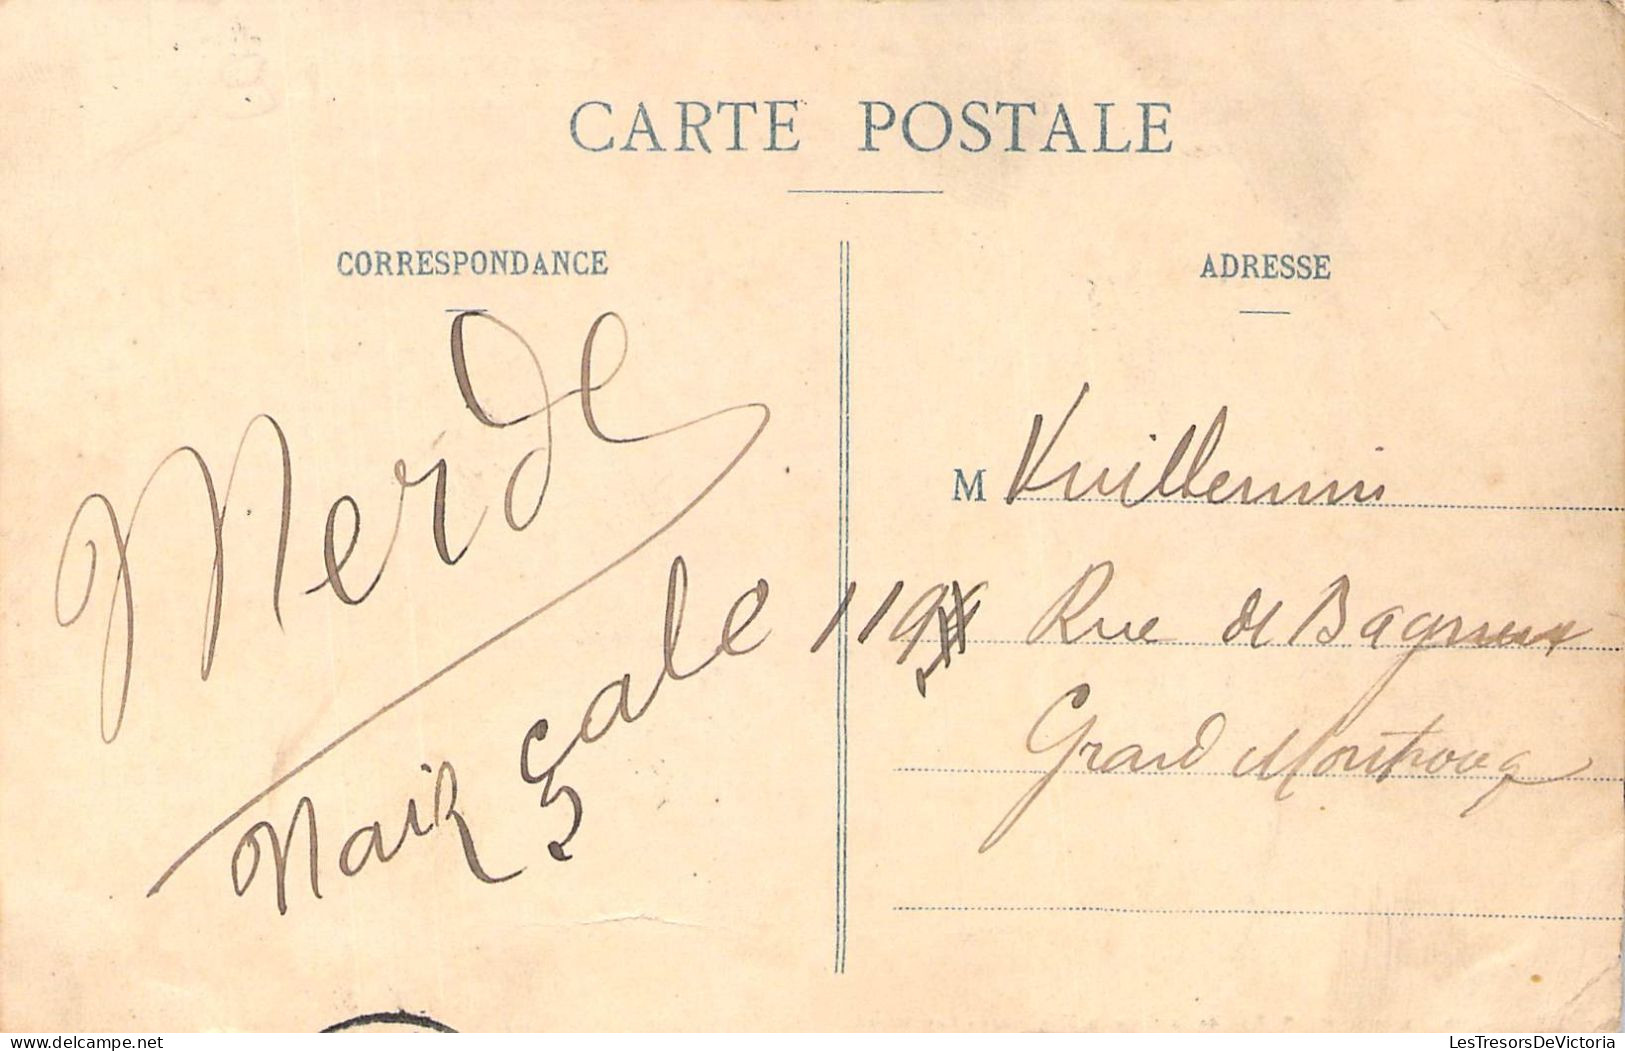 CARTE POSTALE
CORRESPONDANCE
Merde
Noir Sale
ADRESSE
M Vuillermin
119 Rue de Bagneux
Grand Montroug
LesTresorsDeVictoria